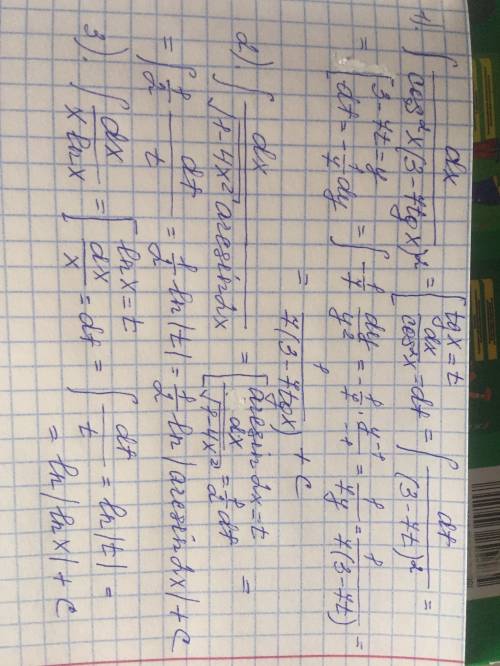 1). ∫ dx / (cos²x(3-7tgx)²) = [tgx=t; dx/cos²x=dt] = ∫ dt / (3-7t)² =
= [3-7t=y; dt=-1/7 dy] = ∫ -1/7 dy/y² = -1/7 · y⁻¹/-1 = 1/7y = 1/7(3-7t) =
= 1/7(3-7tgx) + C
2). ∫ dx / (√1-4x² arcsin2x) = [arcsin2x=t; dx/√1-4x² = 1/2 dt] =
= ∫ 1/2 dt/t = 1/2 ln|t| = 1/2 ln|arcsin2x| + C
3). ∫ dx/xlnx = [lnx=t; dx/x=dt] = ∫ dt/t = ln|t| =
= ln|lnx| + C